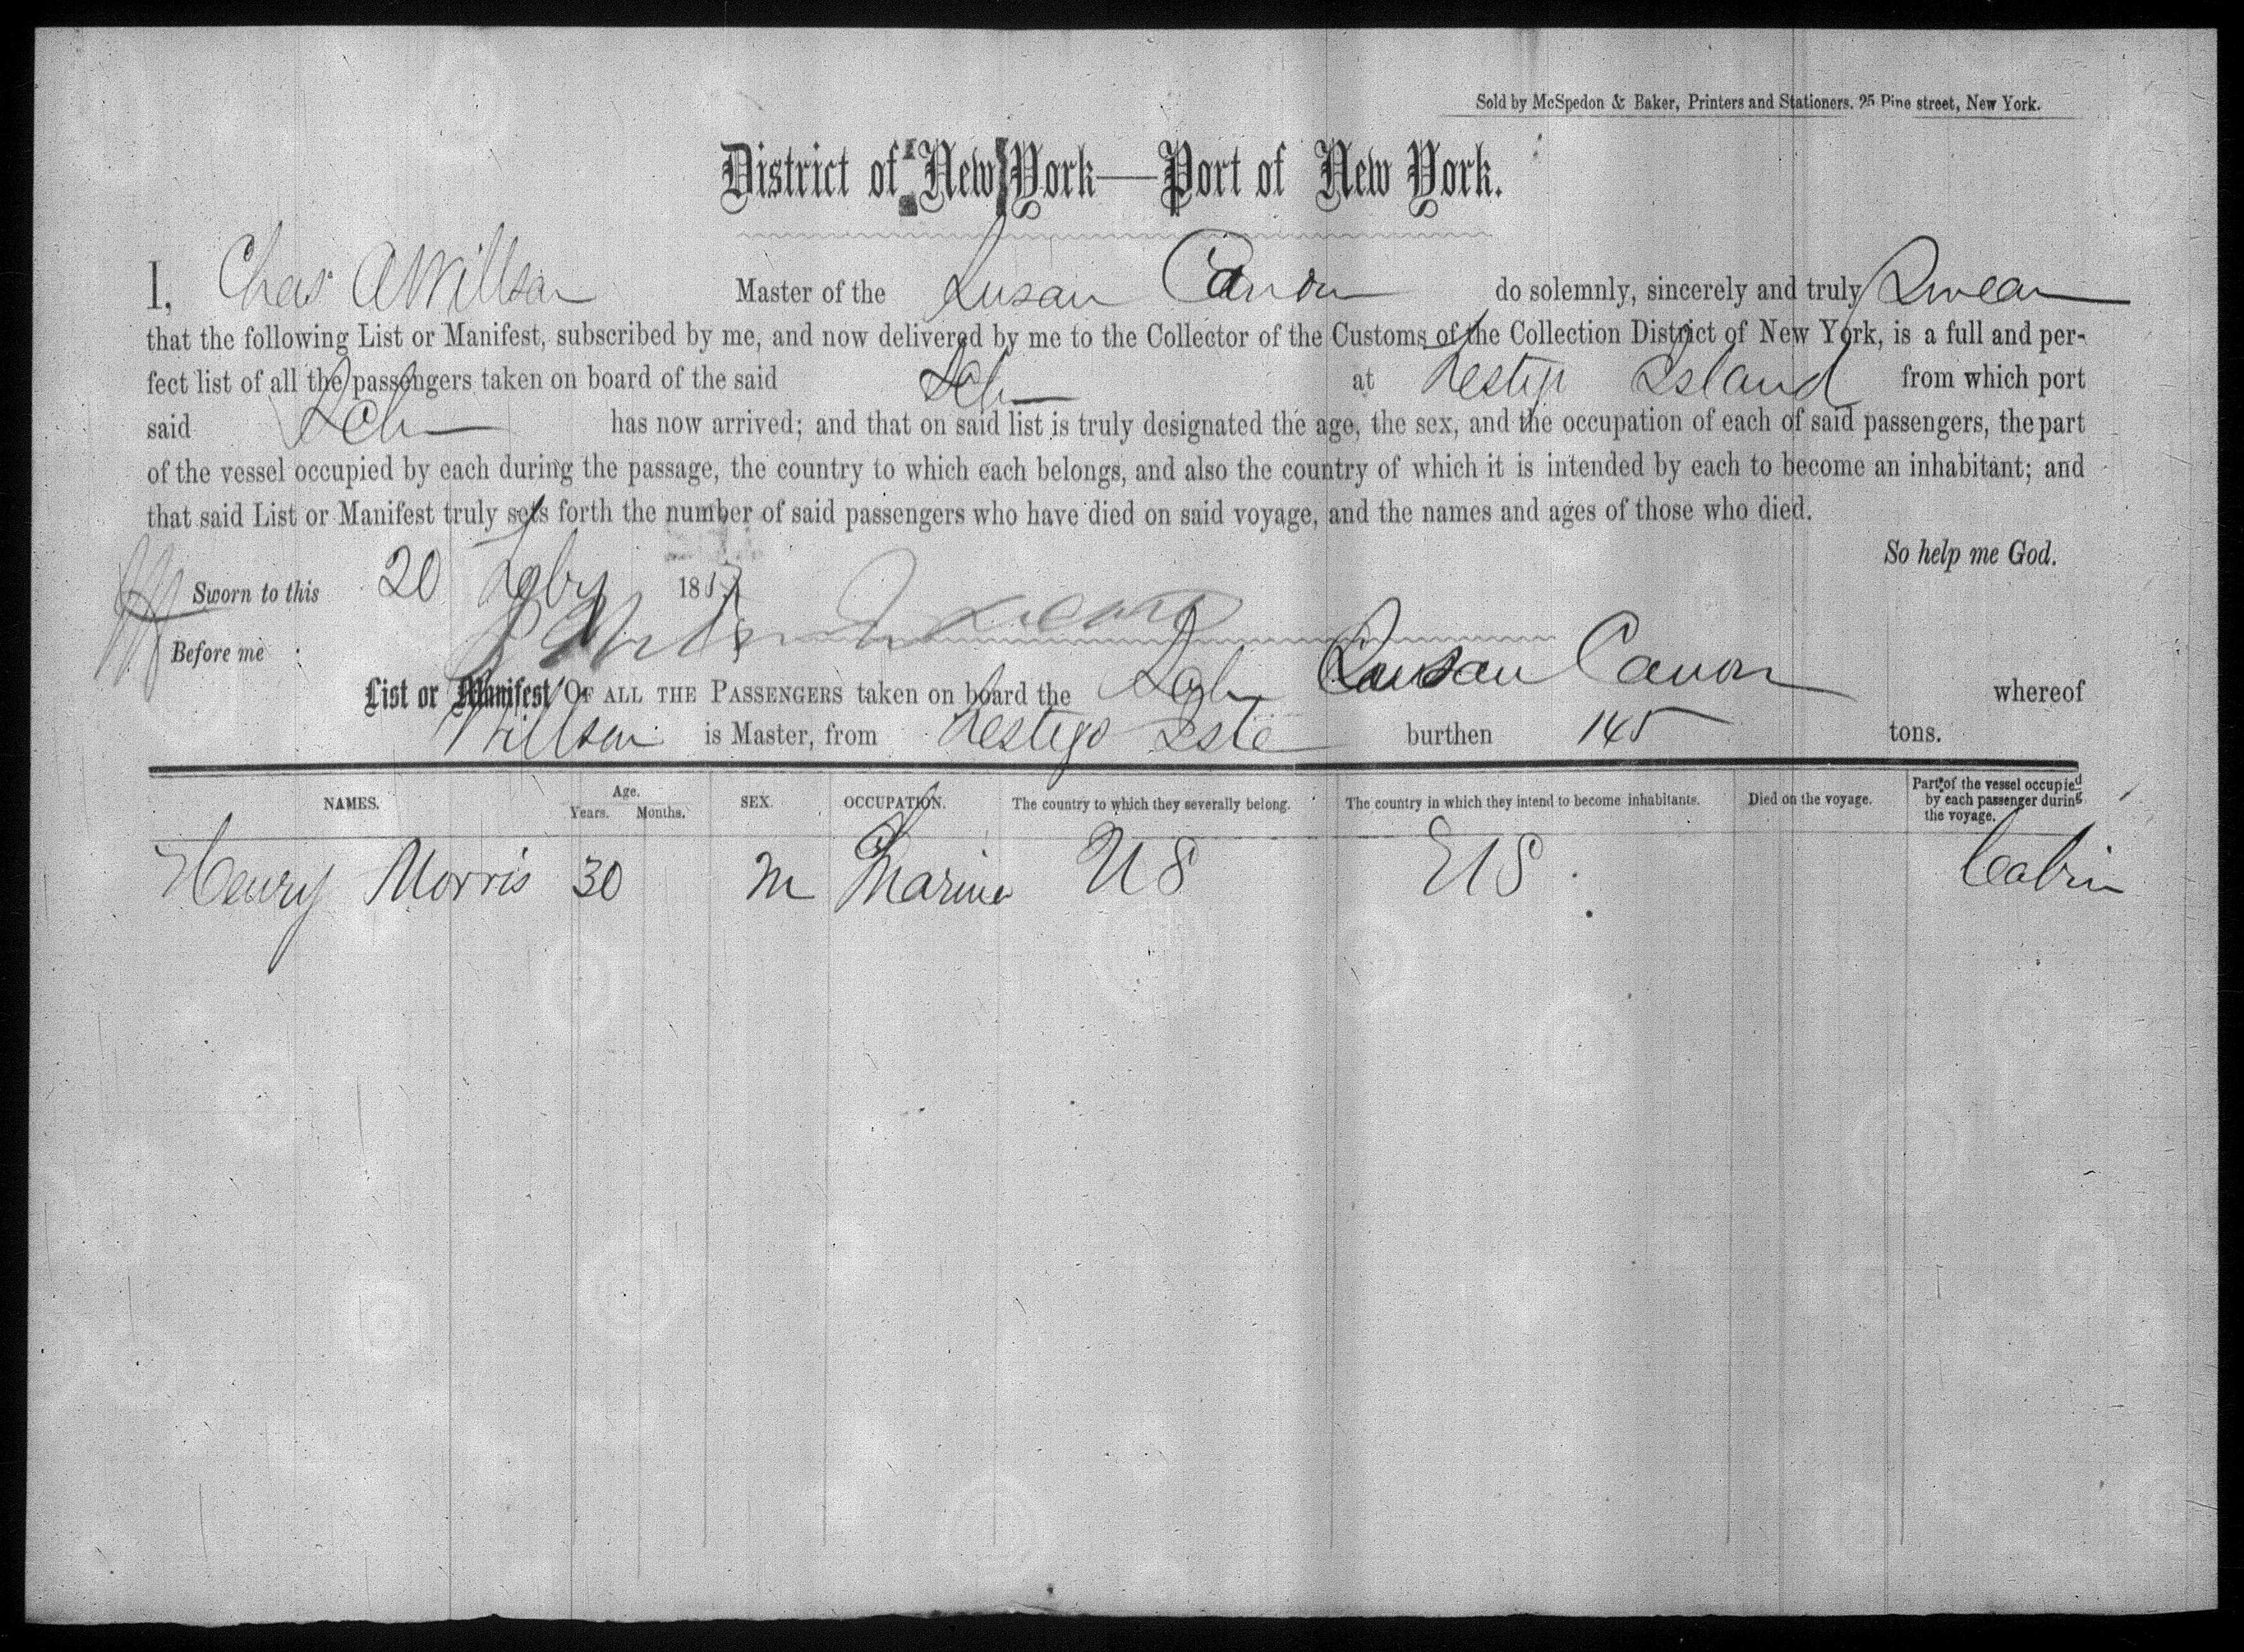 Sold by McSpedon & Baker, Printers and Stationers, 25 Pine street, New York.
District of New York—Port of New York.
I, Chas A Willson Master of the Susan Canon do solemnly, sincerely and truly Swear
that the following List or Manifest, subscribed by me, and now delivered by me to the Collector of the Customs of the Collection District of New York, is a full and per-
fect list of all the passengers taken on board of the said Sch at Testigo Island from which port
said Sch has now arrived; and that on said list is truly designated the age, the sex, and the occupation of each of said passengers, the part
of the vessel occupied by each during the passage, the country to which each belongs, and also the country of which it is intended by each to become an inhabitant; and
that said List or Manifest truly sets forth the number of said passengers who have died on said voyage, and the names and ages of those who died.
So help me God.
Sworn to this 20 Feby 1857
Before me
List or Manifest OF ALL THE PASSENGERS taken on board the Sch Susan Canon whereof
Willson is Master, from Testigo Isle burthen 145 tons.
NAMES. Age. Years. Months. SEX. OCCUPATION. The country to which they severally belong. The country in which they intend to become inhabitants. Died on the voyage. Part of the vessel occupied by each passenger during the voyage.
Henry Morris 30 M Marine US US Cabin